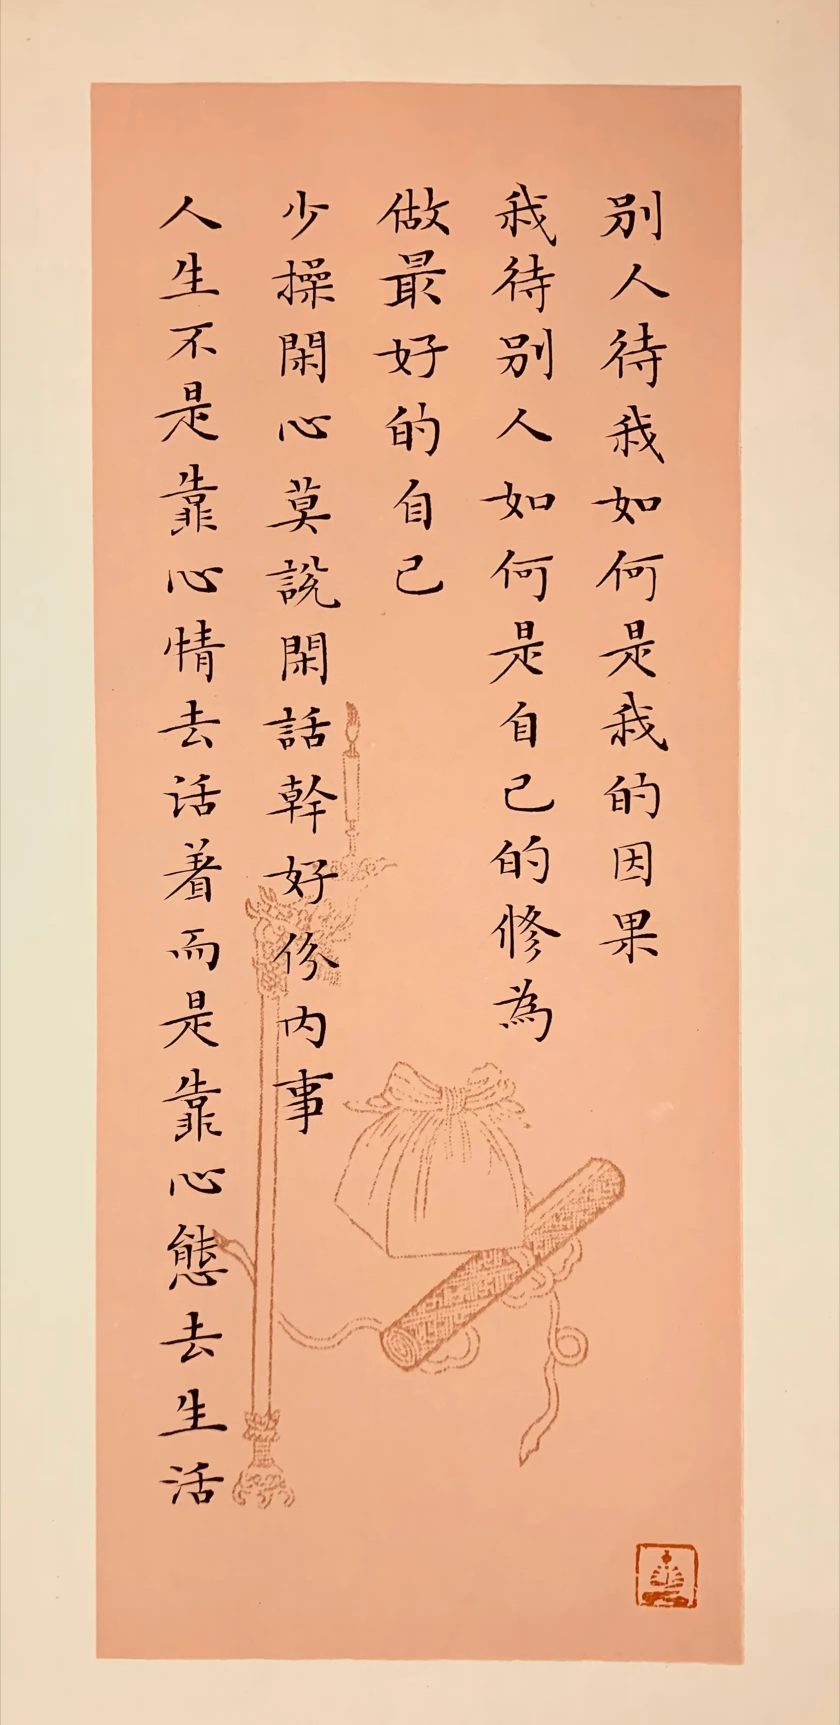 別人待我如何是我的因果
我待別人如何是自己的修為
做最好的自己
少操閑心莫説閑話幹好份内事
人生不是靠心情去活着而是靠心態去生活